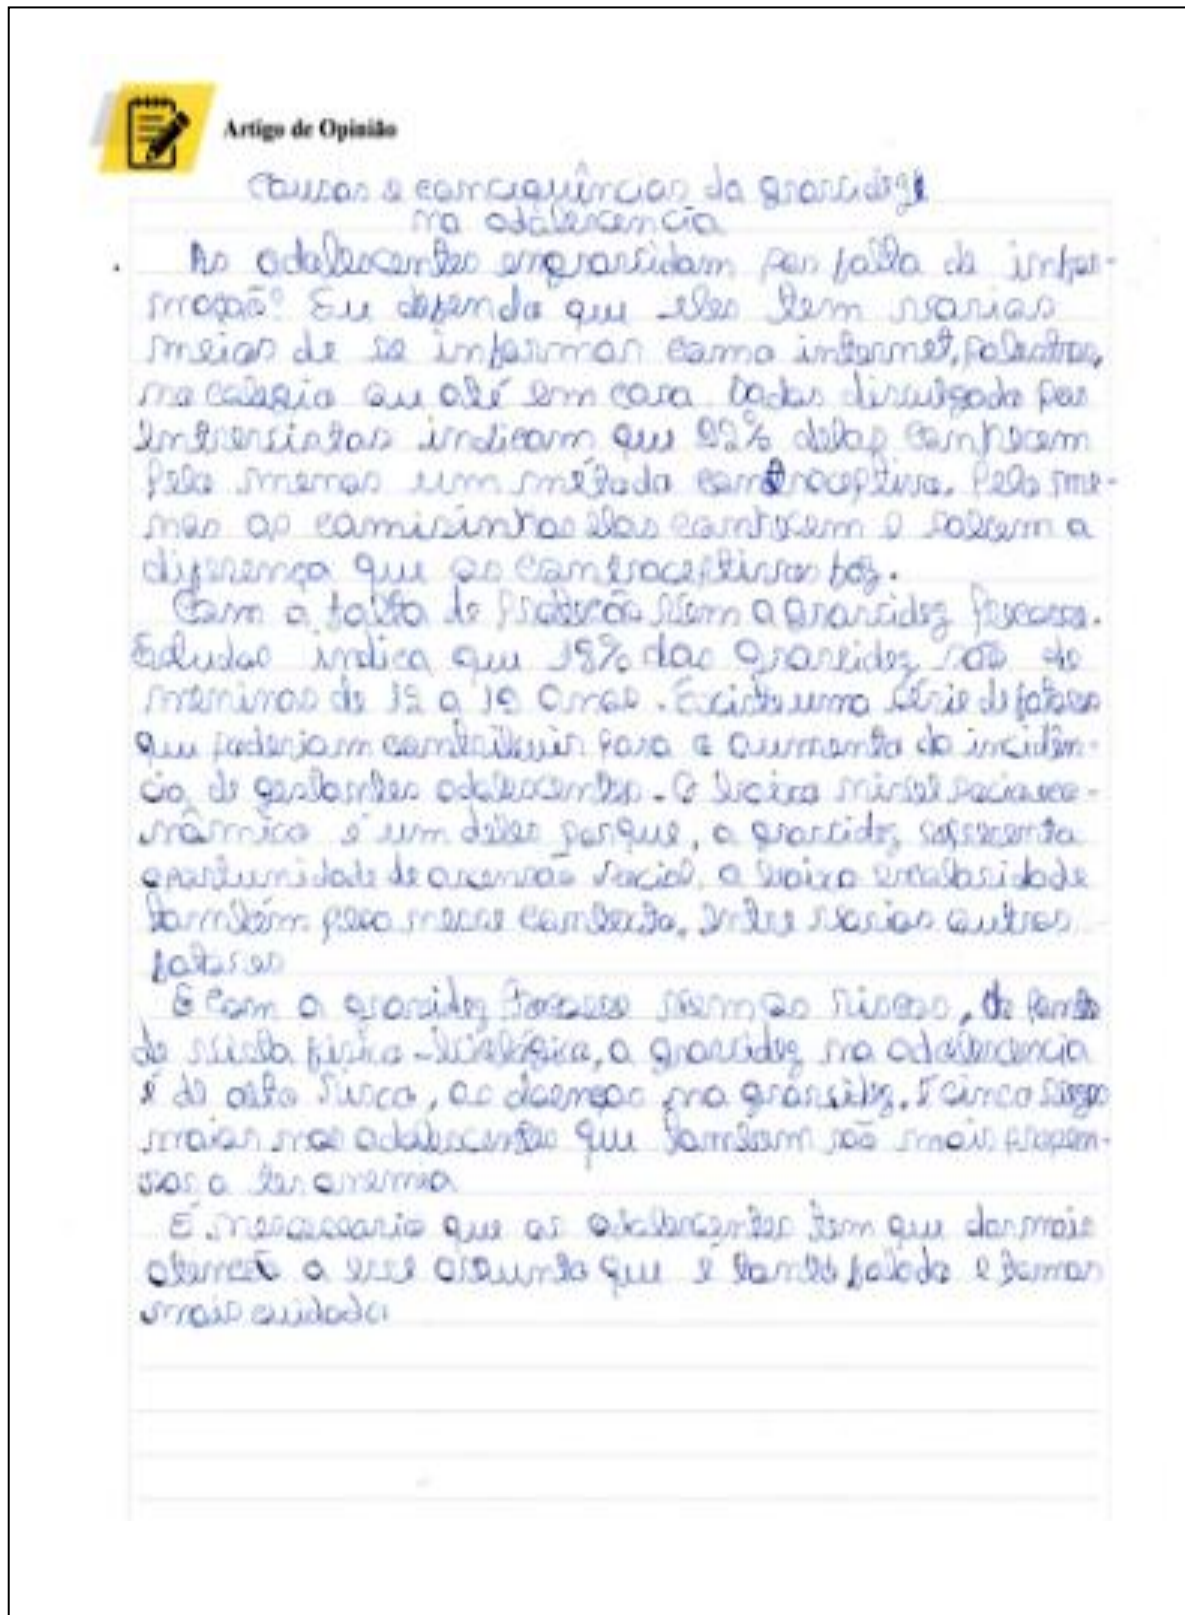 Artigo de Opinião
Causas e conciquências da gravidez
na adolescencia
As adolescentes engravidam por falta de infor-
mação? Eu defendo que elas tem varias
meios de se informar como internet, palestras,
no colegio ou até em casa Dados divulgado por
entrevistas indicam que 92% delas conhecem
pelo menos um método contraceptivo. Pelo me-
nos as camisinhas elas conhecem e sabem a
diferença que os contraceptivos faz.
Com a falta de proteção vem a gravidez precoce.
Estudos indica que 18% das gravidez são de
meninas de 12 a 19 anos. Existe uma série de fatores
que poderiam contribuir para o aumento da incidên-
cia de gestantes adolescentes. O baixo nivel socioeco-
nâmico é um deles porque, a gravidez representa
oportunidade de ascensão social, a baixa escolaridade
também pelo mesmo contexto, entre varios outros
fatores
E com a gravidez precoce vem os riscos, do ponto
de vista fisico-biológico, a gravidez na adolescencia
é de alto risco, as doenças na gravidez. É cinco vezes
maior nas adolescentes que também são mais propen-
sas a ter anemia
É nescessario que as adolescentes tem que dar mais
atenção a esse assunto que é tanto falado e tomar
mais cuidado